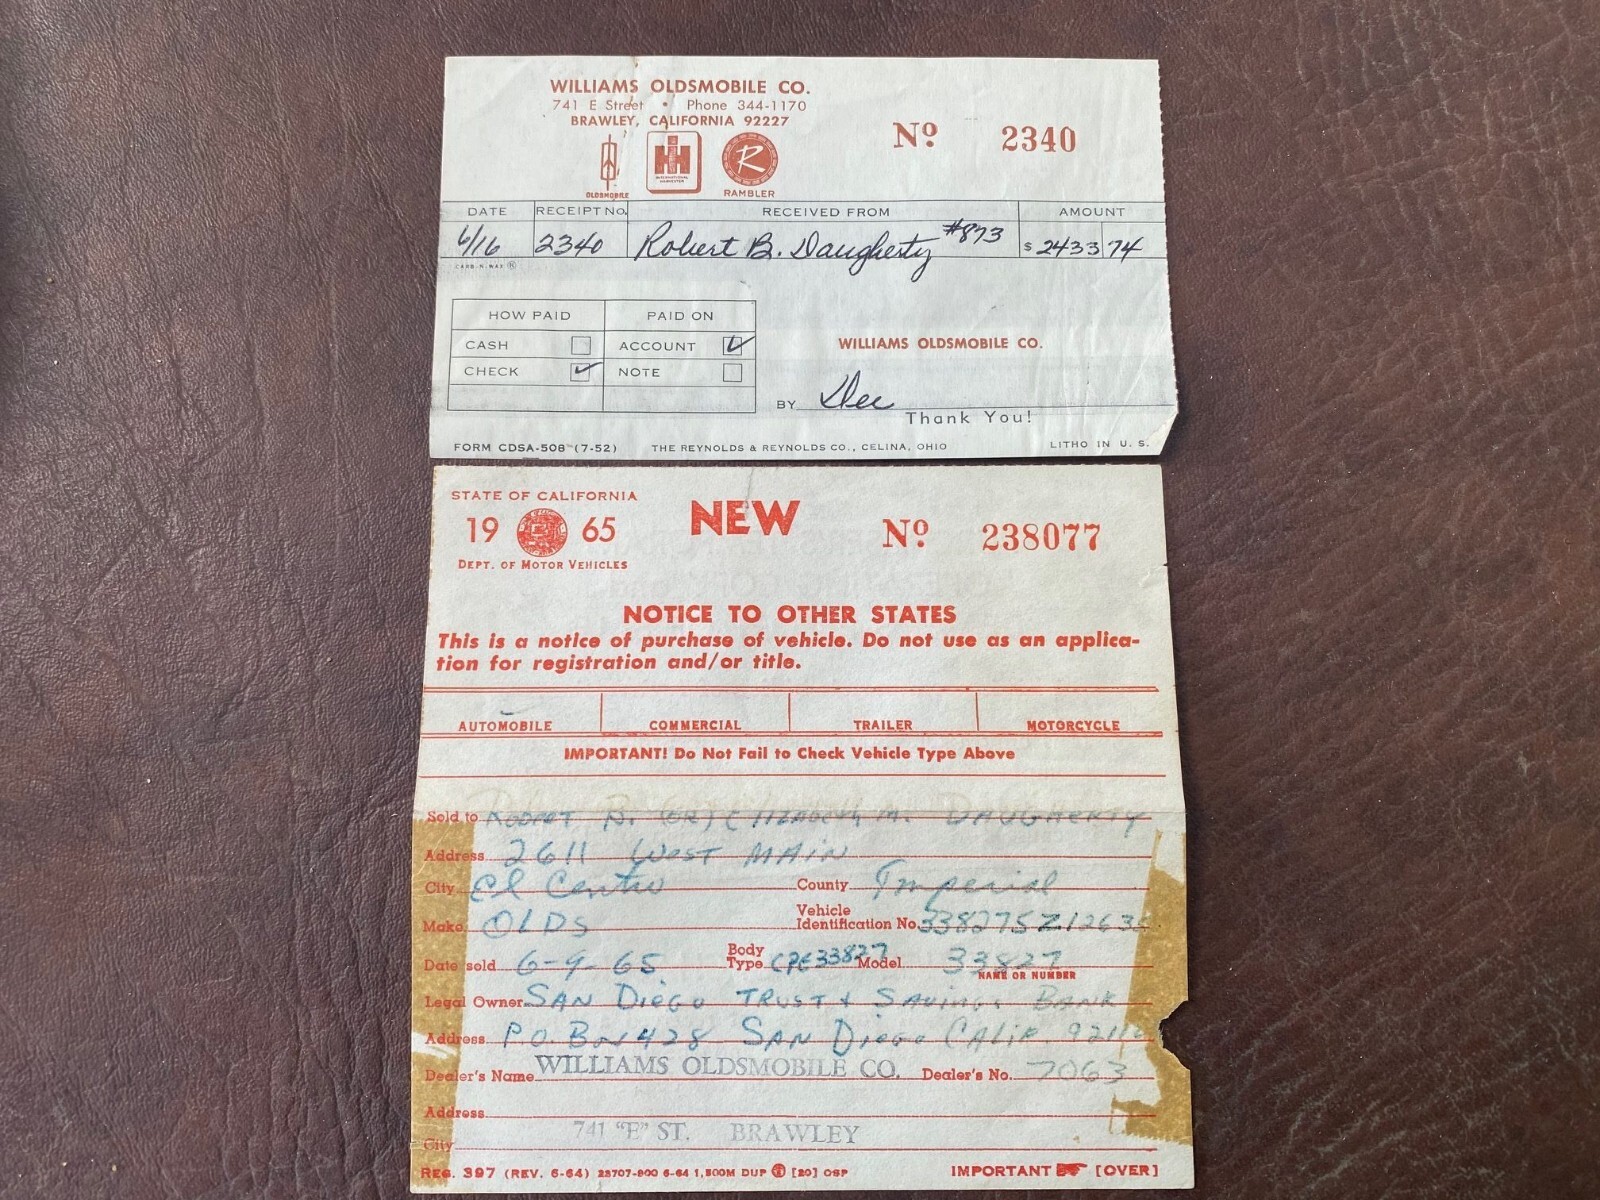 WILLIAMS OLDSMOBILE CO.
741 E Street • Phone 344-1170
BRAWLEY, CALIFORNIA 92227
Nº 2340
OLDSMOBILE
INTERNATIONAL HARVESTER
R
RAMBLER
DATE RECEIPT NO. RECEIVED FROM AMOUNT
6/16 2340 Robert B. Daugherty #873 $ 2433 74
CARB-N-WAX ®
HOW PAID PAID ON
CASH ACCOUNT
CHECK NOTE
WILLIAMS OLDSMOBILE CO.
BY Dee
Thank You!
FORM CDSA-508 (7-52) THE REYNOLDS & REYNOLDS CO., CELINA, OHIO LITHO IN U. S.
STATE OF CALIFORNIA
19 65
DEPT. OF MOTOR VEHICLES
NEW
Nº 238077
NOTICE TO OTHER STATES
This is a notice of purchase of vehicle. Do not use as an applica-
tion for registration and/or title.
AUTOMOBILE COMMERCIAL TRAILER MOTORCYCLE
IMPORTANT! Do Not Fail to Check Vehicle Type Above
Sold to ROBERT B. (OR) ELIZABETH M. DAUGHERTY
Address 2611 WEST MAIN
City El Centro County Imperial
Make OLDS Vehicle Identification No. 338275Z12635
Date sold 6-9-65 Body Type CPE33827 Model 33827
NAME OR NUMBER
Legal Owner SAN DIEGO TRUST & SAVINGS BANK
Address P.O. Box 428 SAN DIEGO CALIF.
Dealer's Name WILLIAMS OLDSMOBILE CO. Dealer's No. 7063
Address
City 741 "E" ST. BRAWLEY
REG. 397 (REV. 6-64) 23707-800 6-64 1,500M DUP [20] OSP IMPORTANT [OVER]